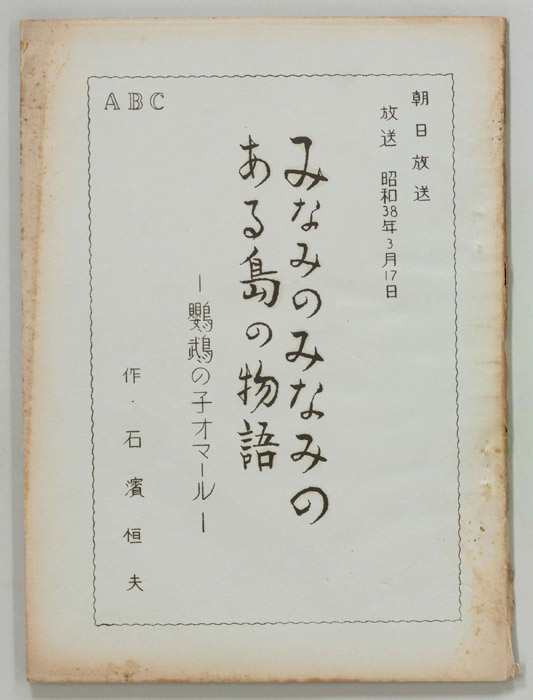 朝日放送
放送 昭和38年3月17日
ABC
みなみのみなみの
ある島の物語
―鸚鵡の子オマール―
作・石濱恒夫